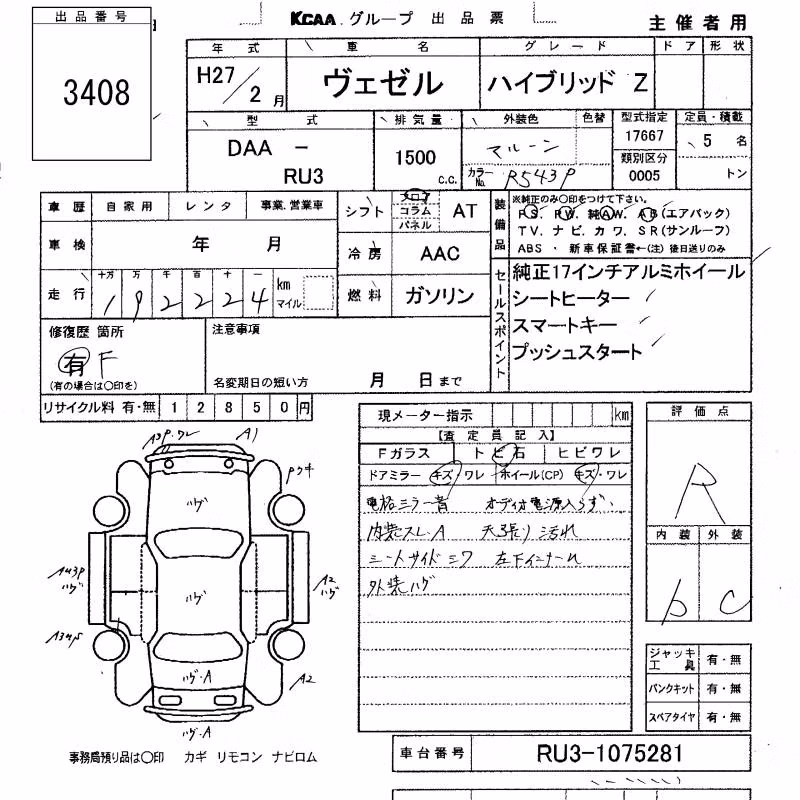 出品番号
3408
KCAA グループ 出品票
主催者用
年式 車名 グレード ドア 形状
H27/2月 ヴェゼル ハイブリッド Z
型式 排気量 外装色 色替 型式指定 定員・積載
17667 5名
DAA -
RU3
1500
c.c.
マルーン
類別区分
カラーNo. R543P
0005 トン
車歴 自家用 レンタ 事業.営業車
シフト フロア コラム パネル AT
装備品
※純正のみ〇印をつけて下さい。
PS. PW. 純AW. AB(エアバック)
TV. ナビ. カワ. SR(サンルーフ)
ABS ・ 新車保証書←(注) 後日送りのみ
車検 年 月
冷房 AAC
走行
十万 万 千 百 十 一
192224 km マイル
燃料 ガソリン
セールスポイント
純正17インチアルミホイール
シートヒーター
スマートキー
プッシュスタート
修復歴 箇所
有 F
(有の場合は〇印を)
注意事項
名変期日の短い方 月 日まで
リサイクル料 有・無 12850円
現メーター指示 km
【査定員記入】
Fガラス トビ石 ヒビワレ
ドアミラー キズ・ワレ ホイール(CP) キズ・ワレ
電格ミラー音 オーディオ電源入らず.
内装スレ・A 天張り汚れ
シートサイドシワ 左下インナーれ
外装ハゲ
評価点
R
内装 外装
b C
ジャッキ工具 有・無
パンクキット 有・無
スペアタイヤ 有・無
A3P.ワレ
A1
Pクキ
ハゲ
A43P
ハゲ
ハゲ
A2
ハゲ
A34P
A2
ハゲ・A
ハゲ・A
事務局預り品は〇印 カギ リモコン ナビロム
車台番号 RU3-1075281